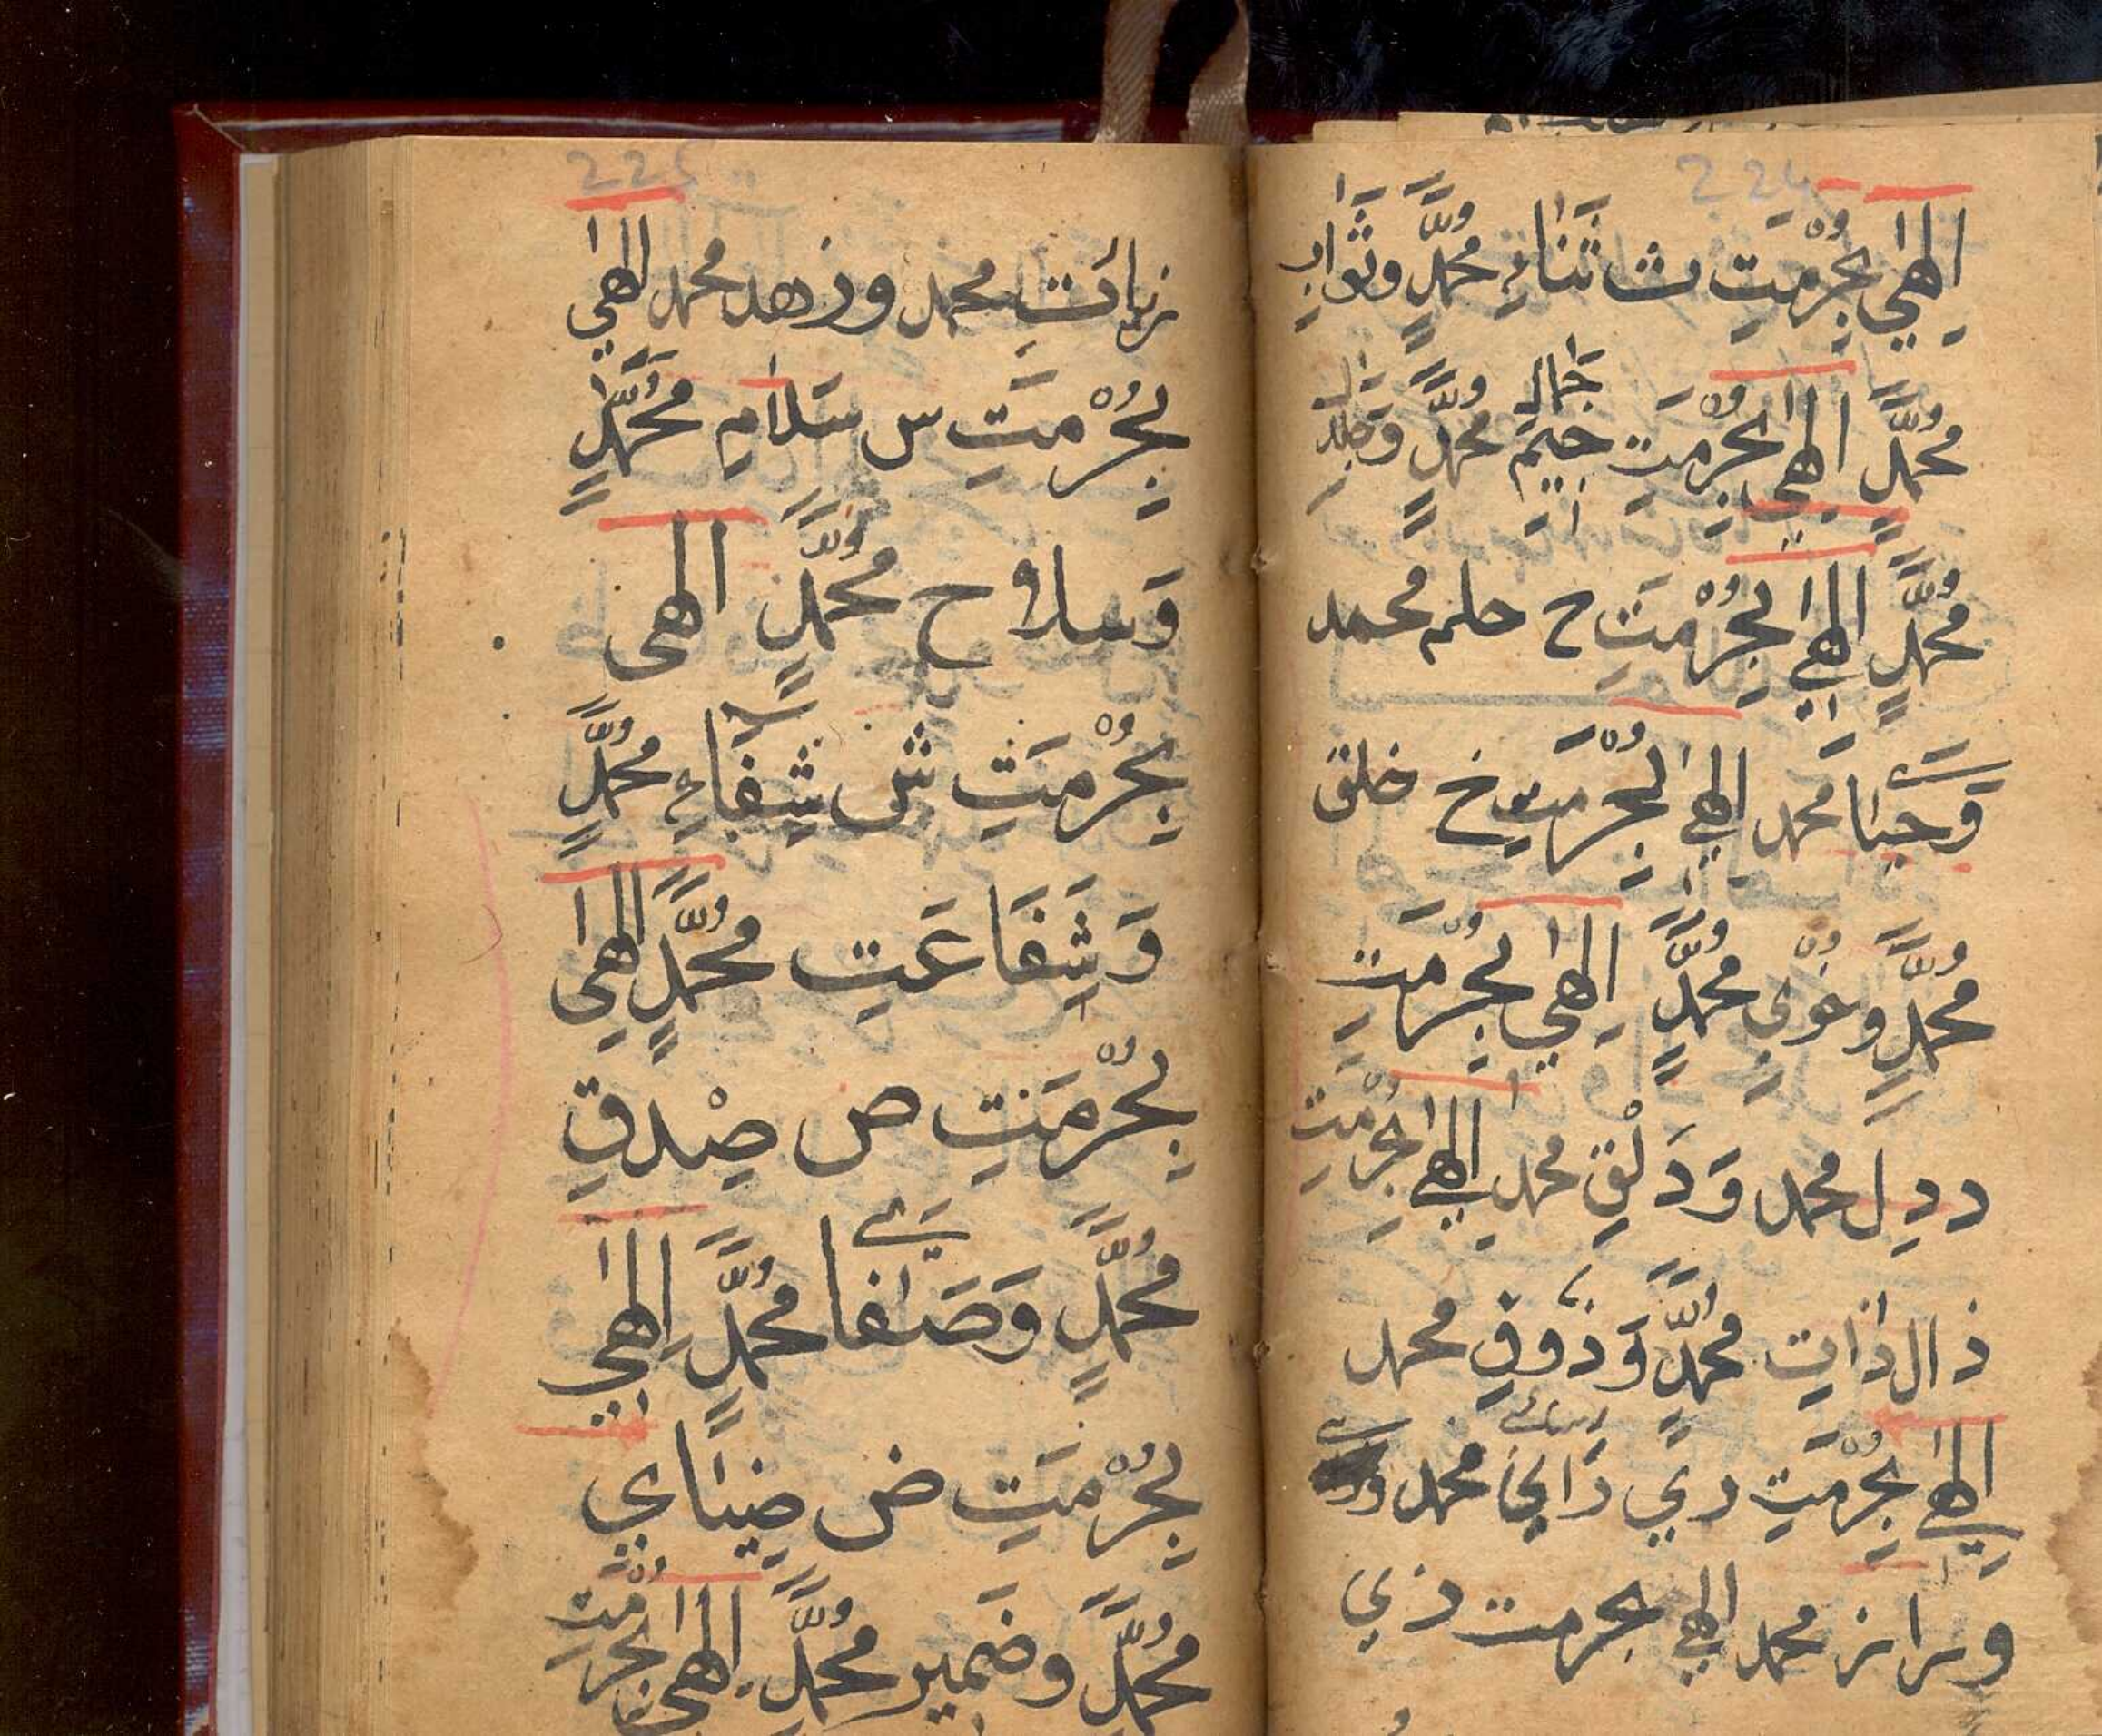 224
اِلٰهِي بِحُرْمَتِ ث ثَنَاءِ مُحَمَّدٍ وثَوَابِ
مُحَمَّدٍ الٰهِي بِحُرْمَتِ جِيم جَمَالِ مُحَمَّدٍ
مُحَمَّدٍ الٰهِي بِحُرْمَتِ ح حلم محمد
وَحَيَا محمد الٰهِي بِحُرْمَتِ خ خلق
مُحَمَّدٍ وخُوْيِ مُحَمَّدٍ اِلٰهِي بِحُرْمَتِ
د دِل محمد وَدَلْقِ محمد الٰهِي بِحُرْمَتِ
ذال ذاتِ مُحَمَّدٍ وَذَوقِ محمد
الٰهِي بِحُرْمَتِ رِي رَايِ محمد
وراز محمد الهِي بحرمت زي
225
زيائتِ محمد وزهد محمد الٰهِي
بِحُرْمَتِ س سَلَامِ مُحَمَّدٍ
وَسلاح مُحَمَّدٍ الهى
بِحُرْمَتِ ش شِفَاءِ مُحَمَّدٍ
وَشِفَاعَتِ مُحَمَّدٍ الٰهِي
بِحُرْمَتِ ص صِدْقِ
مُحَمَّدٍ وَصَفَا مُحَمَّدٍ اِلٰهِي
بِحُرْمَتِ ض ضِيَايِ
مُحَمَّدٍ وضَمير مُحَمَّدٍ اِلٰهِي بحُرْمَتِ